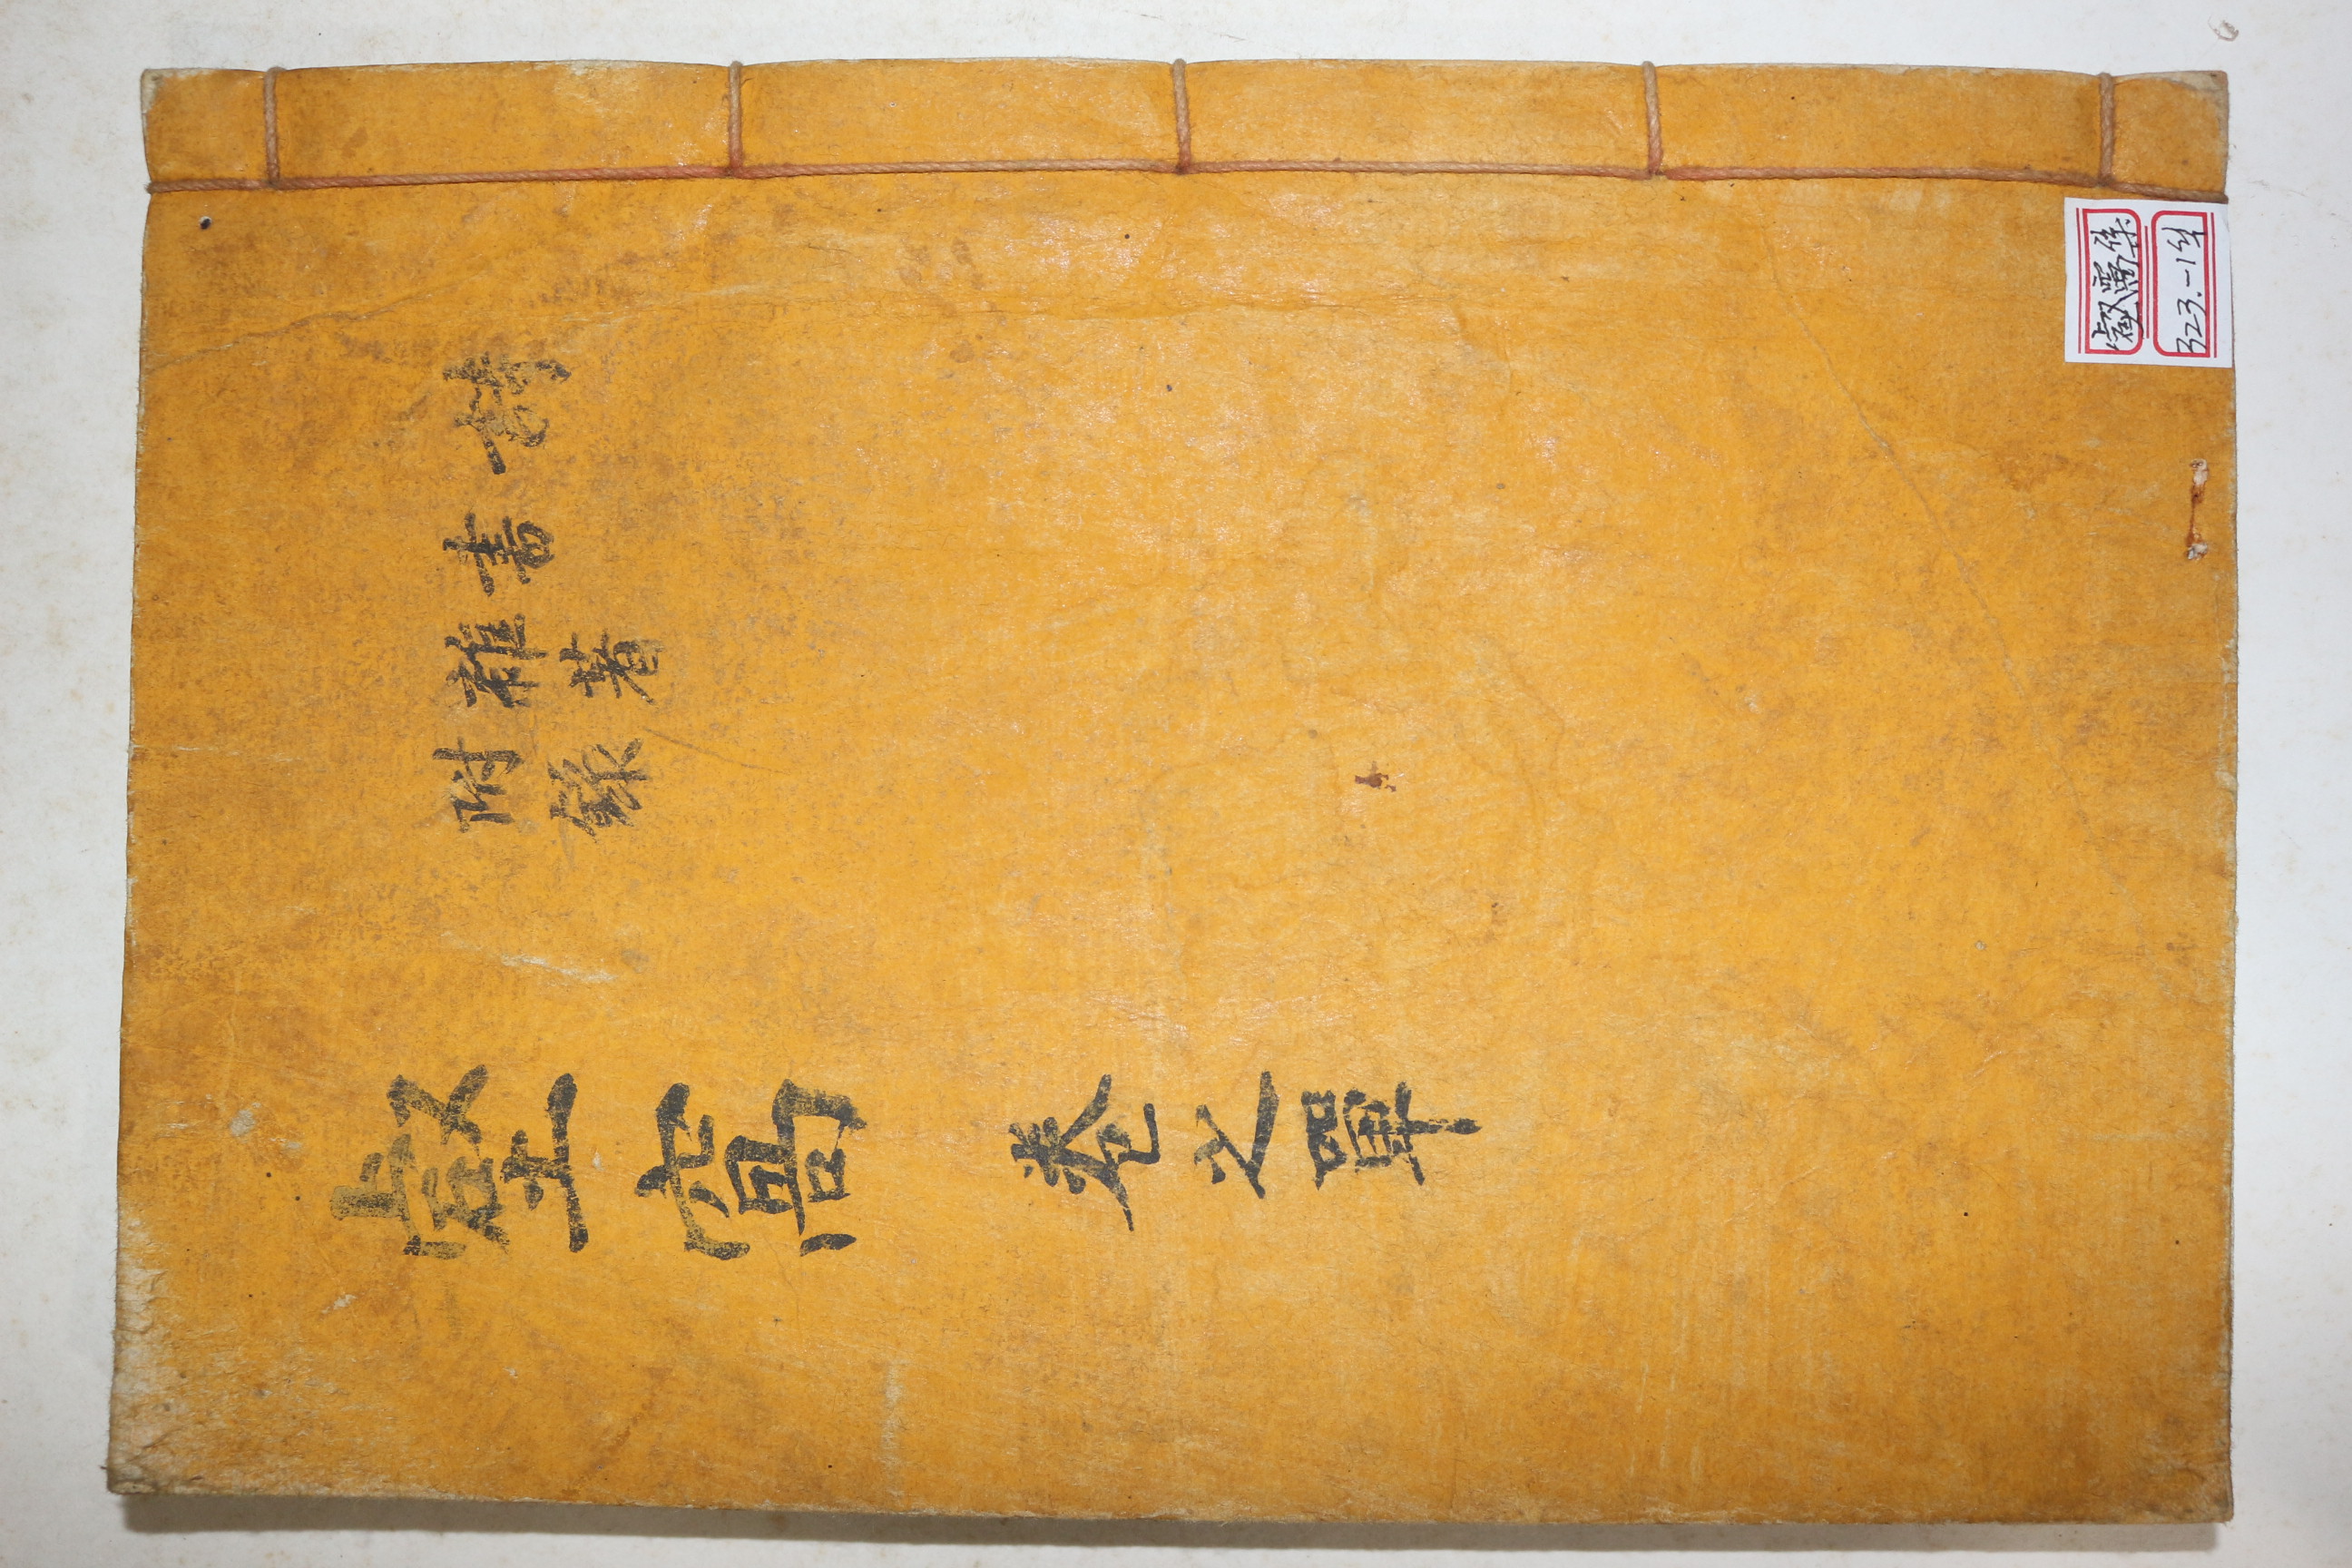 詩
書
雜著
附錄
壑窩 卷之單
壑窩集
323.-1책